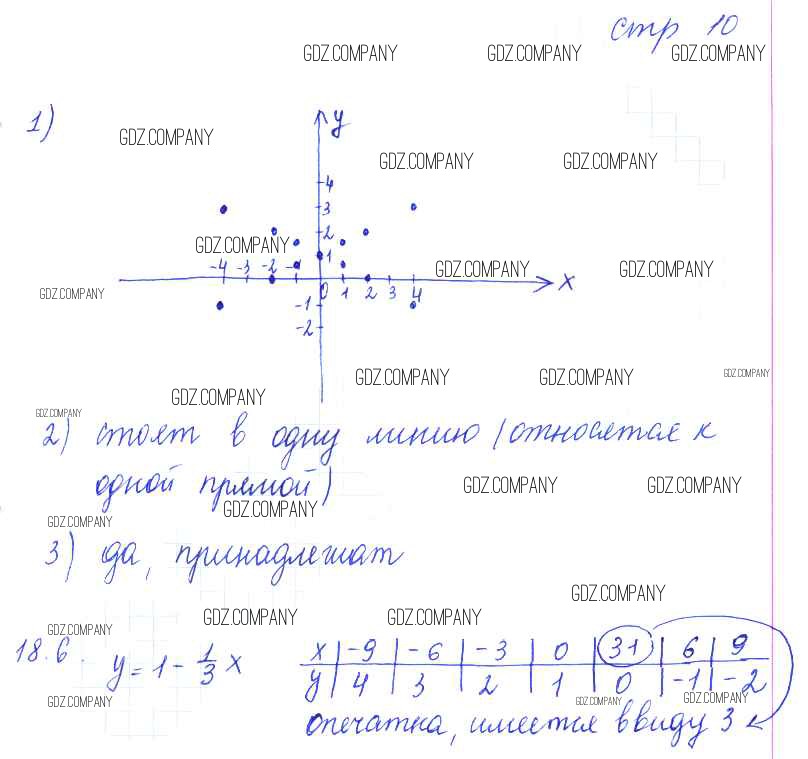 стр 10
GDZ.COMPANY GDZ.COMPANY GDZ.COMPANY
1)
y
GDZ.COMPANY GDZ.COMPANY GDZ.COMPANY
4
3
2
GDZ.COMPANY
1
-4 -3 -2 -1
GDZ.COMPANY GDZ.COMPANY
x
GDZ.COMPANY
0 1 2 3 4
-1
-2
GDZ.COMPANY GDZ.COMPANY GDZ.COMPANY
GDZ.COMPANY
GDZ.COMPANY
2) стоят в одну линию (относятся к
одной прямой)
GDZ.COMPANY GDZ.COMPANY
GDZ.COMPANY
GDZ.COMPANY
3) да, принадлежат
GDZ.COMPANY
GDZ.COMPANY GDZ.COMPANY
GDZ.COMPANY
18.6. y = 1 - 1/3 x
x | -9 | -6 | -3 | 0 | 31 | 6 | 9
y | 4 | 3 | 2 | 1 | 0 | -1 | -2
GDZ.COMPANY GDZ.COMPANY GDZ.COMPANY
опечатка, имеется ввиду 3